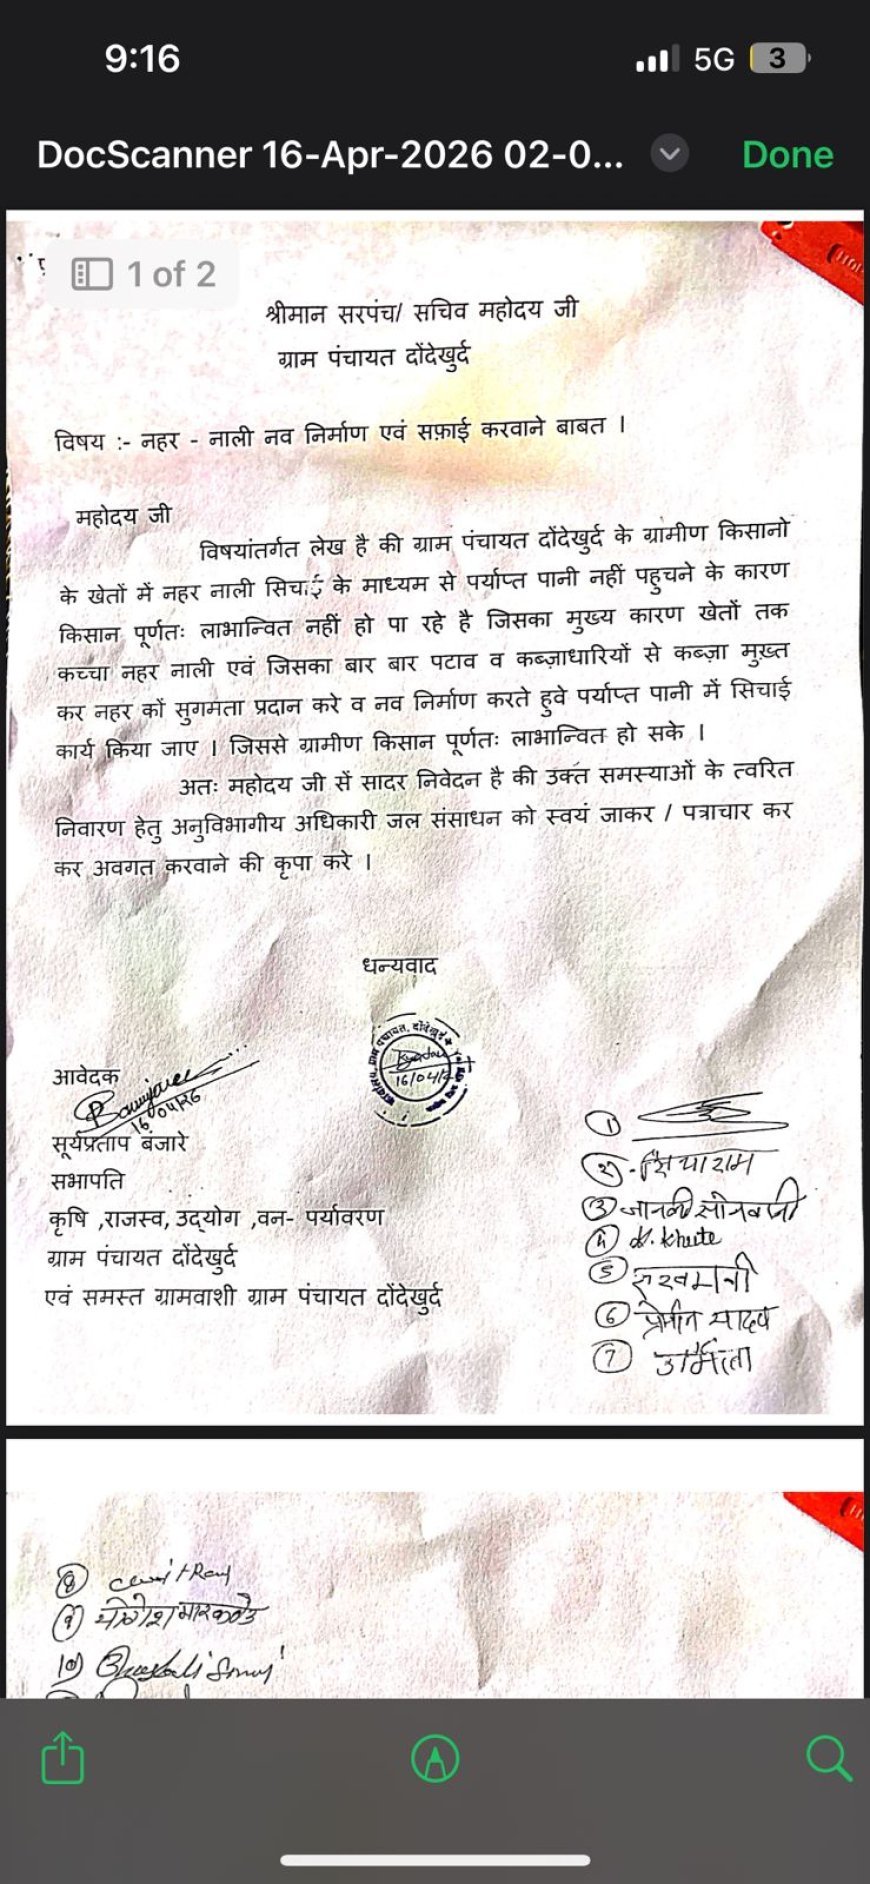 9:16
5G 3
DocScanner 16-Apr-2026 02-0...
Done
1 of 2
श्रीमान सरपंच/ सचिव महोदय जी
ग्राम पंचायत दोंदेखुर्द
विषय :- नहर - नाली नव निर्माण एवं सफ़ाई करवाने बाबत ।
महोदय जी
विषयांतर्गत लेख है की ग्राम पंचायत दोंदेखुर्द के ग्रामीण किसानो
के खेतों में नहर नाली सिचाई के माध्यम से पर्याप्त पानी नहीं पहुचने के कारण
किसान पूर्णतः लाभान्वित नहीं हो पा रहे है जिसका मुख्य कारण खेतों तक
कच्चा नहर नाली एवं जिसका बार बार पटाव व कब्ज़ाधारियों से कब्ज़ा मुख़्त
कर नहर कों सुगमता प्रदान करे व नव निर्माण करते हुवे पर्याप्त पानी में सिचाई
कार्य किया जाए । जिससे ग्रामीण किसान पूर्णतः लाभान्वित हो सके ।
अतः महोदय जी सें सादर निवेदन है की उक्त समस्याओं के त्वरित
निवारण हेतु अनुविभागीय अधिकारी जल संसाधन को स्वयं जाकर / पत्राचार कर
कर अवगत करवाने की कृपा करे ।
धन्यवाद
आवेदक
16/04/26
16/04/2
सूर्यप्रताप बंजारे
सभापति
कृषि ,राजस्व, उद्योग ,वन- पर्यावरण
ग्राम पंचायत दोंदेखुर्द
एवं समस्त ग्रामवाशी ग्राम पंचायत दोंदेखुर्द
1
2 - सियाराम
3 जानकी सोनवानी
4 khute
5 रुखमनी
6 यादव
7 उर्मिला
8
9 योगेश मारकंडे
10)